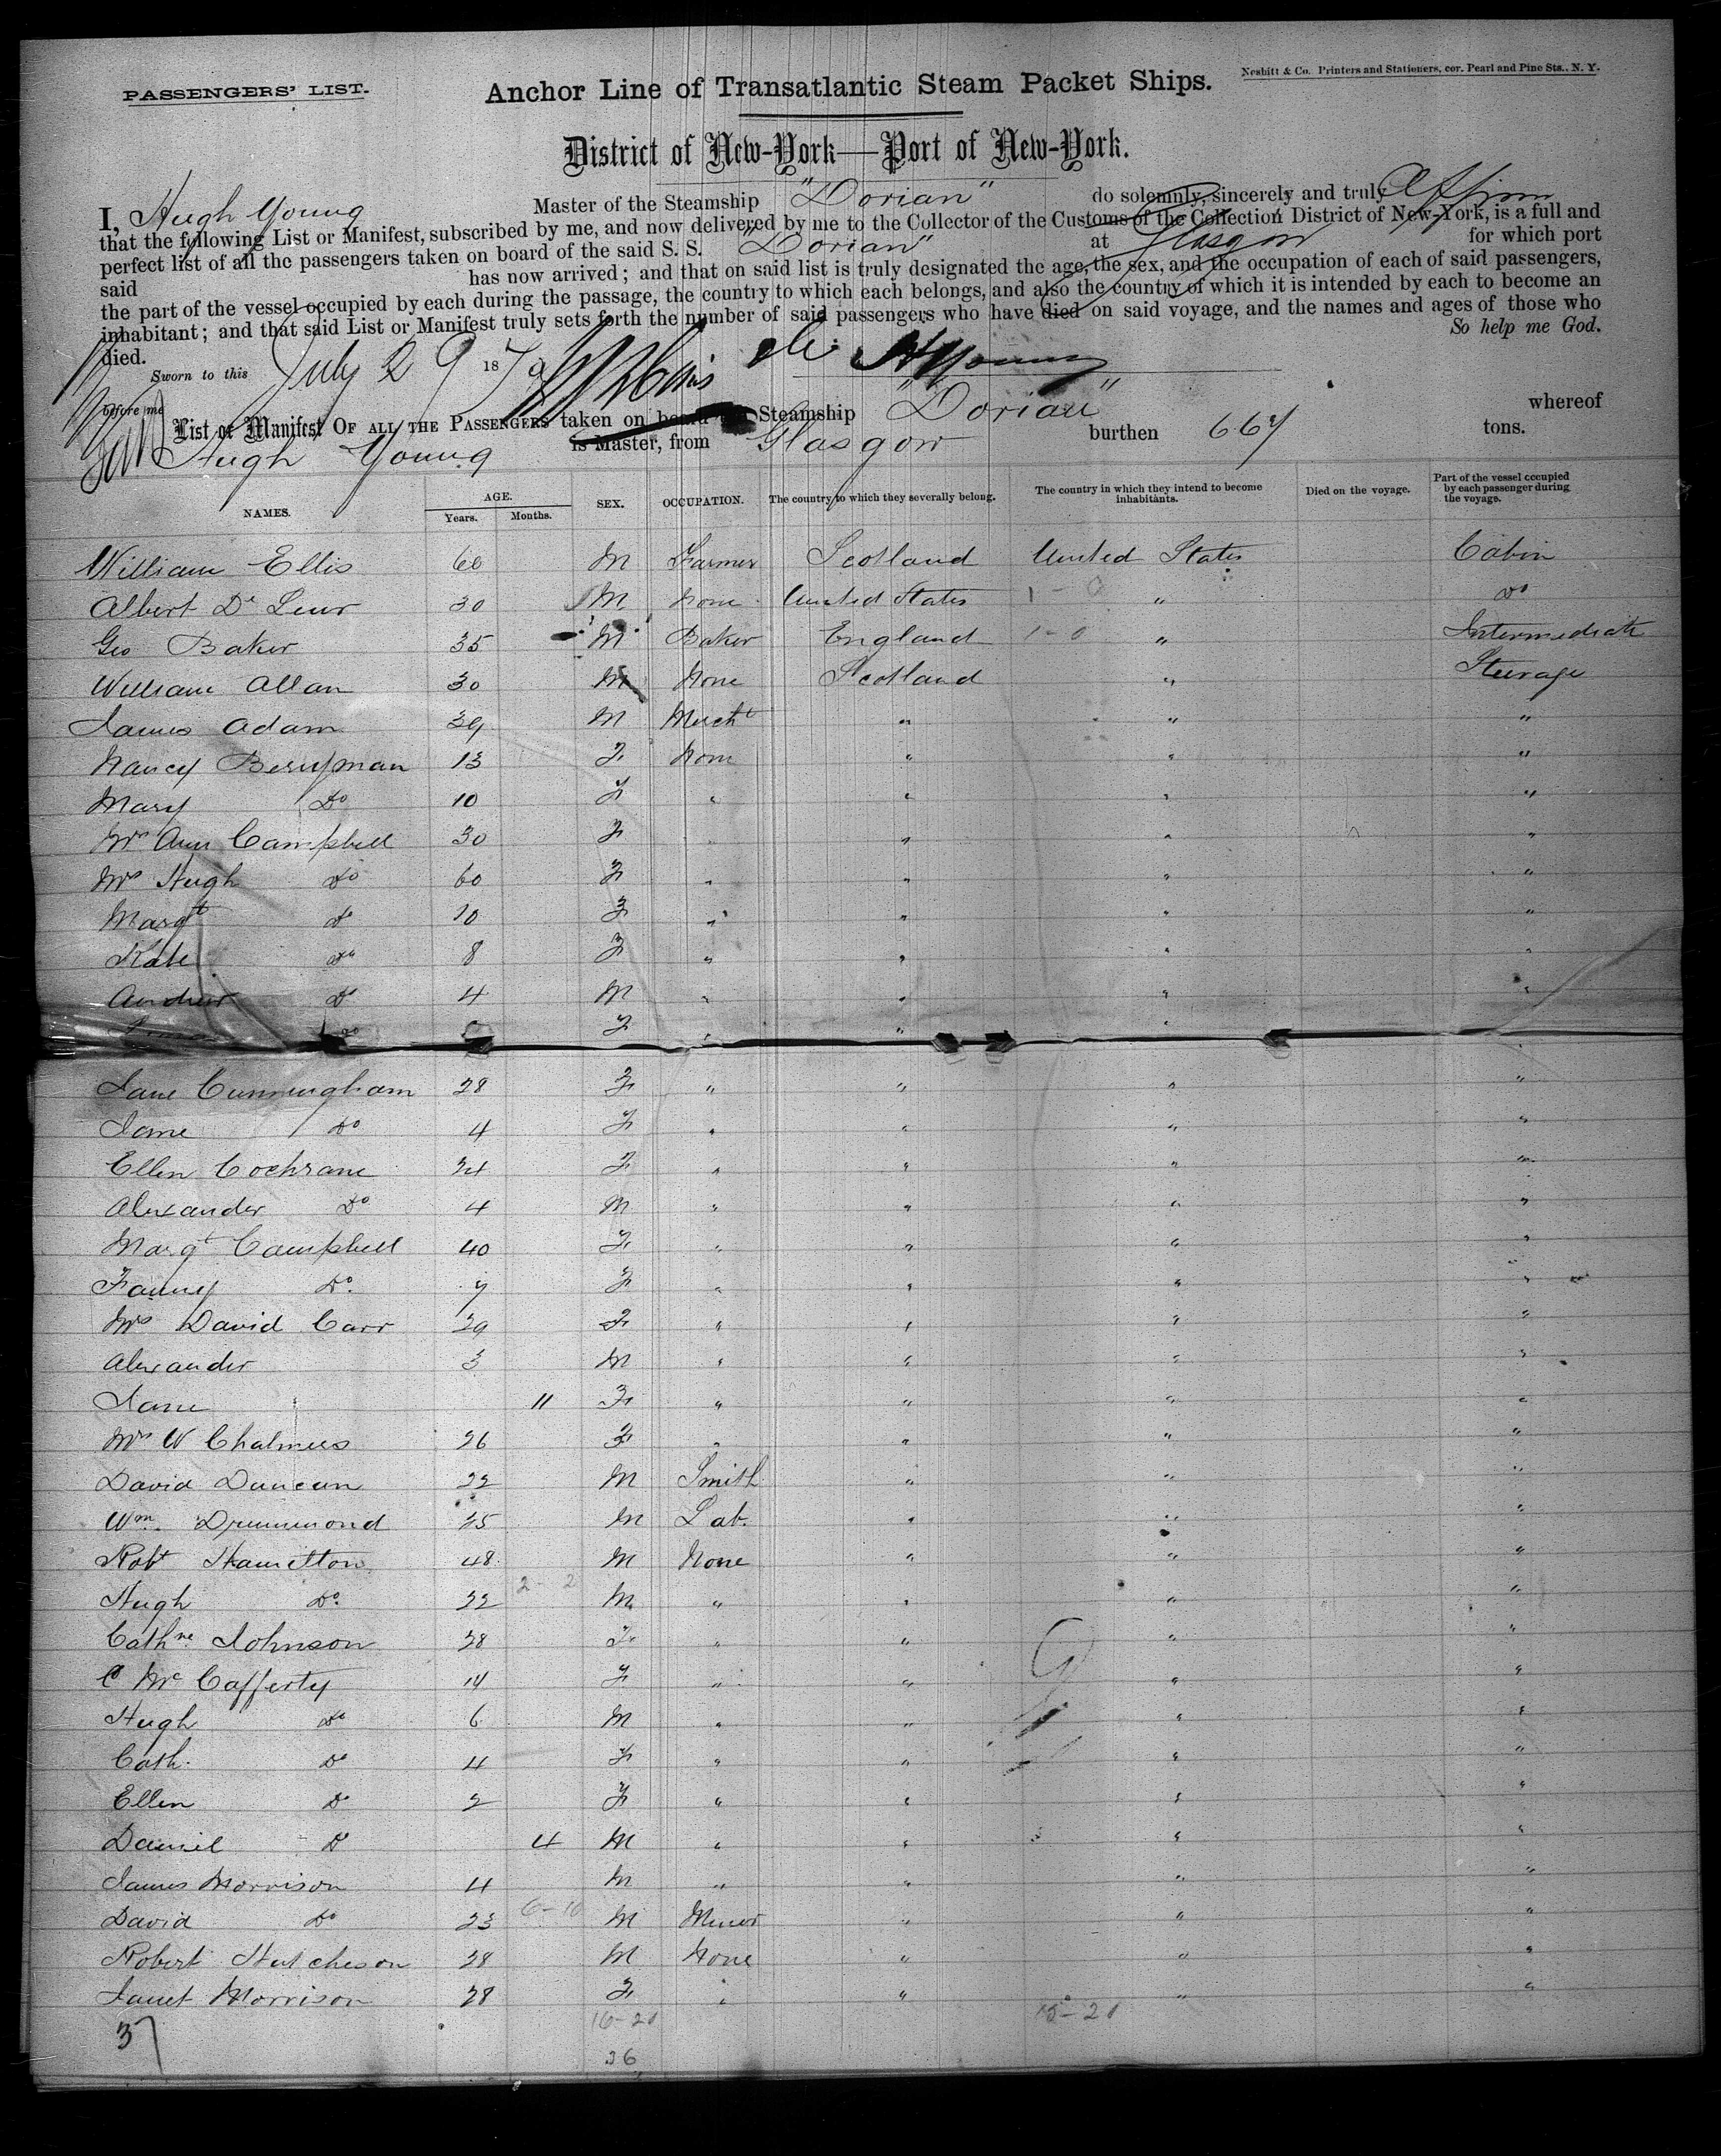 PASSENGERS' LIST.
Anchor Line of Transatlantic Steam Packet Ships.
Nesbitt & Co. Printers and Stationers, cor. Pearl and Pine Sts., N. Y.
District of New-York—Port of New-York.
I, Hugh Young Master of the Steamship "Dorian" do solemnly, sincerely and truly Affirm
that the following List or Manifest, subscribed by me, and now delivered by me to the Collector of the Customs of the Collection District of New-York, is a full and
perfect list of all the passengers taken on board of the said S. S. "Dorian" at Glasgow for which port
said has now arrived; and that on said list is truly designated the age, the sex, and the occupation of each of said passengers,
the part of the vessel occupied by each during the passage, the country to which each belongs, and also the country of which it is intended by each to become an
inhabitant; and that said List or Manifest truly sets forth the number of said passengers who have died on said voyage, and the names and ages of those who
died. So help me God.
Sworn to this July 29 1870 H Young
before me
List or Manifest OF ALL THE PASSENGERS taken on board the Steamship "Dorian" whereof
Hugh Young is Master, from Glasgow burthen 667 tons.
NAMES. AGE. Years. Months. SEX. OCCUPATION. The country to which they severally belong. The country in which they intend to become inhabitants. Died on the voyage. Part of the vessel occupied by each passenger during the voyage.
William Ellis 60 M Farmer Scotland United States Cabin
Albert De Leur 30 M None United States 1 - 0 " Do
Geo Baker 35 M Baker England 1-0 " Intermediate
William Allan 30 M None Scotland " Steerage
James Adam 39 M Mercht " " "
Nancy Berryman 13 F None " " "
Mary Do 10 F " " " "
Mrs Ann Campbell 30 F " " " "
Mrs Hugh Do 60 F " " " "
Margt Do 10 F " " " "
Kate Do 8 F " " " "
Andrew Do 4 M " " " "
Do F " " "
Jane Cunningham 28 F " " " "
Jane Do 4 F " " " "
Ellen Cochrane 24 F " " " "
Alexander Do 4 M " " " "
Margt Campbell 40 F " " " "
Fanny Do. 7 F " " " "
Mrs David Carr 29 F " " " "
Alexander 3 M " " " "
Jane 11 F " " " "
Mrs W Chalmers 26 F " " " "
David Duncan 22 M Smith " " "
Wm. Drummond 25 M Lab. " " "
Robt Hamilton 48 M None " " "
Hugh Do. 22 2 - 2 M " " " "
Cathne Johnson 28 F " " " "
C McCafferty 14 F " " " "
Hugh Do 6 M " " " "
Cath. Do 4 F " " " "
Ellen Do 2 F " " " "
Daniel Do 4 M " " " "
James Morrison 4 M " " " "
David Do 23 6-10 M Miner " " "
Robert Hutcheson 28 M None " " "
Janet Morrison 28 F " " " "
37 16-20 15-20
36